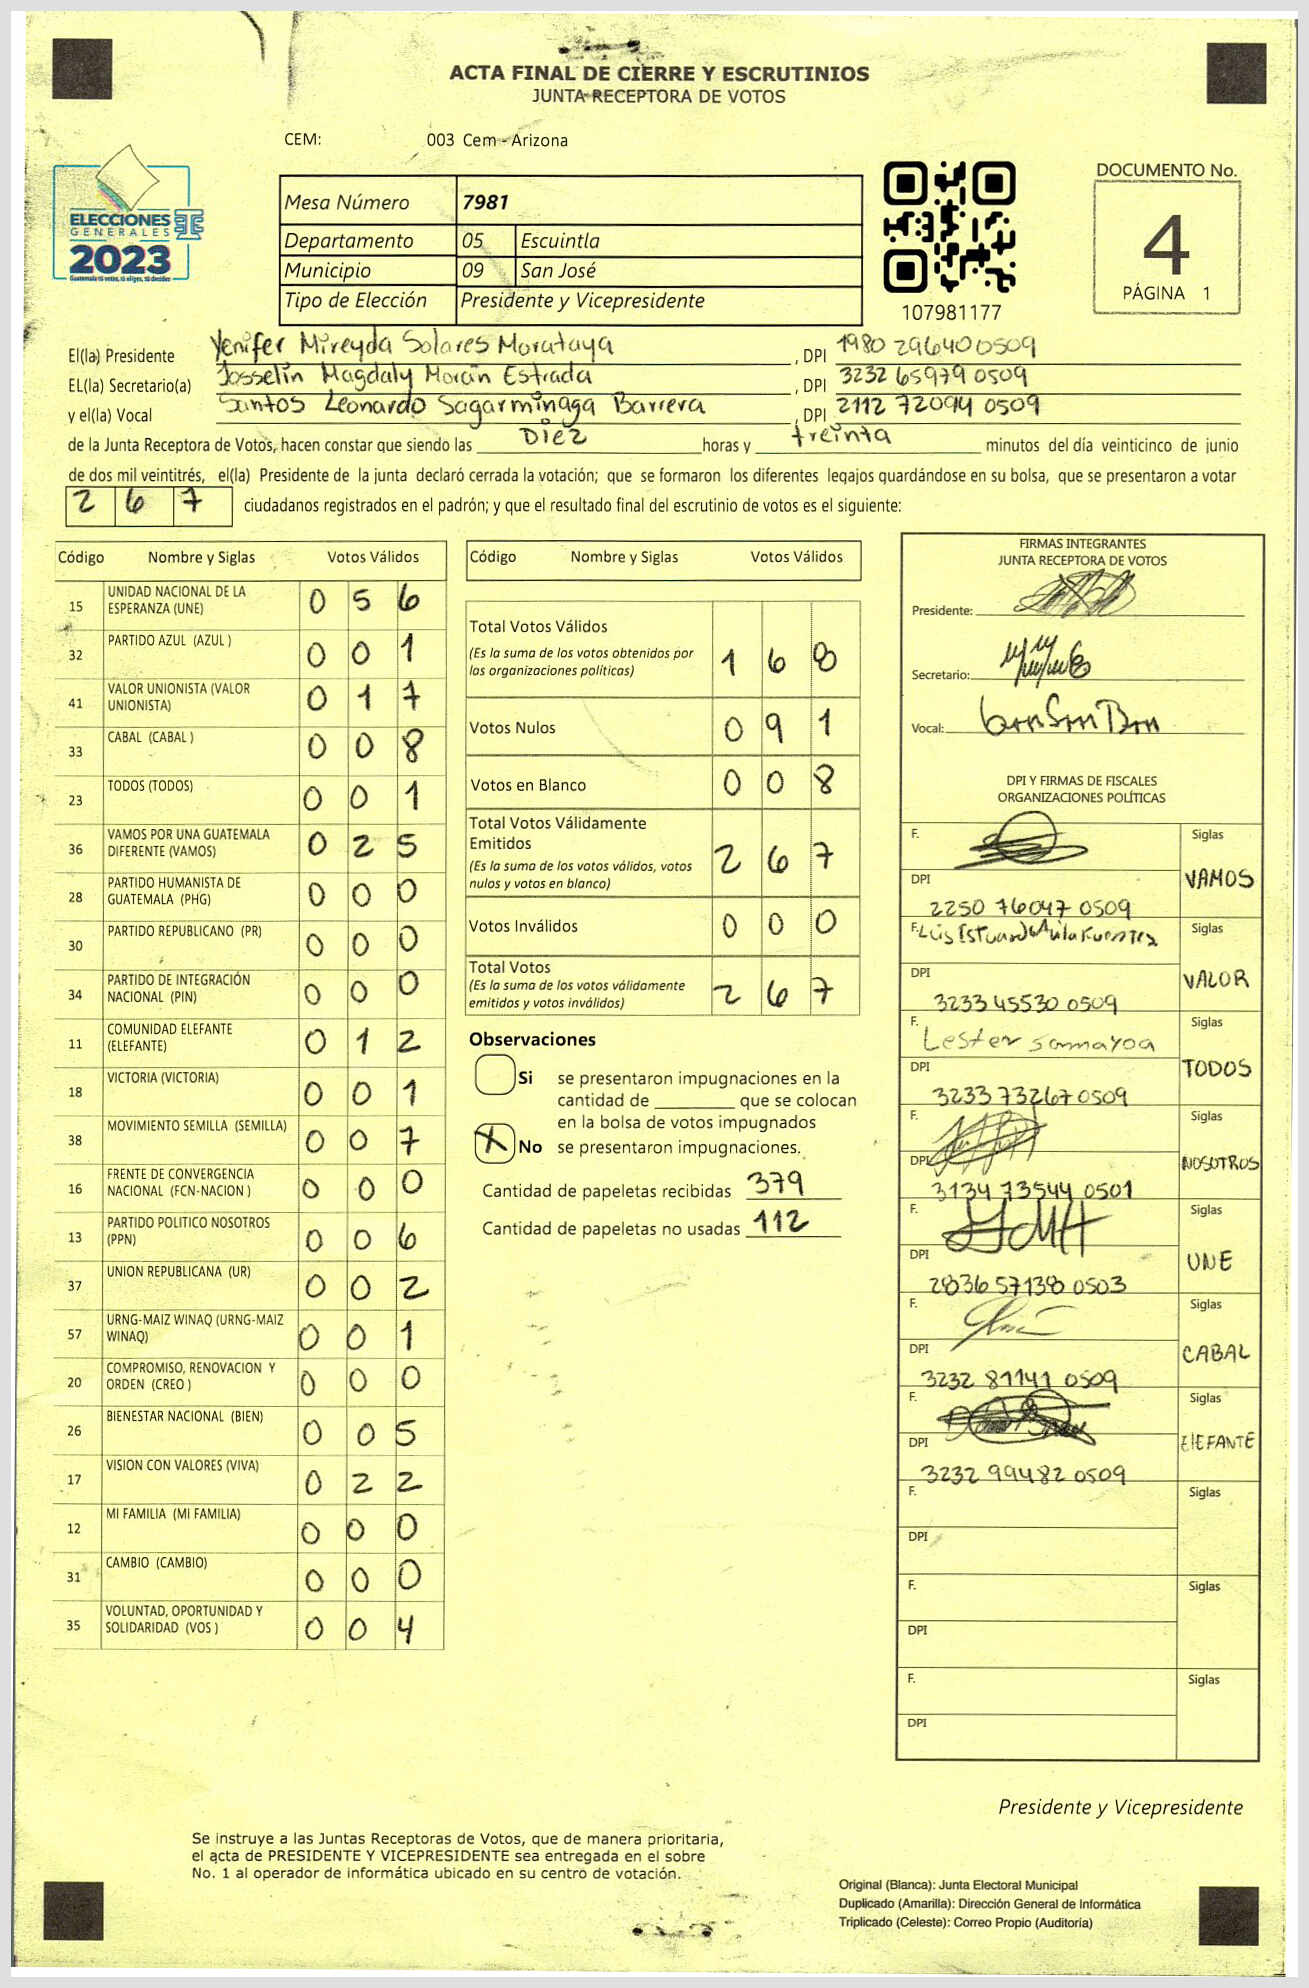 ACTA FINAL DE CIERRE Y ESCRUTINIOS
JUNTA RECEPTORA DE VOTOS
CEM: 003 Cem - Arizona
ELECCIONES
GENERALES
2023
Mesa Número 7981
Departamento 05 Escuintla
Municipio 09 San José
Tipo de Elección Presidente y Vicepresidente
107981177
DOCUMENTO No.
4
PÁGINA 1
El(la) Presidente Yenifer Mireyda Solares Morataya , DPI 1980 29640 0509
EL(la) Secretario(a) Josselin Magdaly Morán Estrada , DPI 3232 65979 0509
y el(la) Vocal Santos Leonardo Sagarminaga Barrera , DPI 2112 72094 0509
de la Junta Receptora de Votos, hacen constar que siendo las Diez horas y treinta minutos del día veinticinco de junio
de dos mil veintitrés, el(la) Presidente de la junta declaró cerrada la votación; que se formaron los diferentes legajos guardándose en su bolsa, que se presentaron a votar
2 6 7 ciudadanos registrados en el padrón; y que el resultado final del escrutinio de votos es el siguiente:
Código Nombre y Siglas Votos Válidos
15 UNIDAD NACIONAL DE LA ESPERANZA (UNE) 0 5 6
32 PARTIDO AZUL (AZUL ) 0 0 1
41 VALOR UNIONISTA (VALOR UNIONISTA) 0 1 7
33 CABAL (CABAL ) 0 0 8
23 TODOS (TODOS) 0 0 1
36 VAMOS POR UNA GUATEMALA DIFERENTE (VAMOS) 0 2 5
28 PARTIDO HUMANISTA DE GUATEMALA (PHG) 0 0 0
30 PARTIDO REPUBLICANO (PR) 0 0 0
34 PARTIDO DE INTEGRACIÓN NACIONAL (PIN) 0 0 0
11 COMUNIDAD ELEFANTE (ELEFANTE) 0 1 2
18 VICTORIA (VICTORIA) 0 0 1
38 MOVIMIENTO SEMILLA (SEMILLA) 0 0 7
16 FRENTE DE CONVERGENCIA NACIONAL (FCN-NACION ) 0 0 0
13 PARTIDO POLITICO NOSOTROS (PPN) 0 0 6
37 UNION REPUBLICANA (UR) 0 0 2
57 URNG-MAIZ WINAQ (URNG-MAIZ WINAQ) 0 0 1
20 COMPROMISO, RENOVACION Y ORDEN (CREO ) 0 0 0
26 BIENESTAR NACIONAL (BIEN) 0 0 5
17 VISION CON VALORES (VIVA) 0 2 2
12 MI FAMILIA (MI FAMILIA) 0 0 0
31 CAMBIO (CAMBIO) 0 0 0
35 VOLUNTAD, OPORTUNIDAD Y SOLIDARIDAD (VOS ) 0 0 4
Código Nombre y Siglas Votos Válidos
Total Votos Válidos
(Es la suma de los votos obtenidos por las organizaciones políticas) 1 6 8
Votos Nulos 0 9 1
Votos en Blanco 0 0 8
Total Votos Válidamente Emitidos
(Es la suma de los votos válidos, votos nulos y votos en blanco) 2 6 7
Votos Inválidos 0 0 0
Total Votos
(Es la suma de los votos válidamente emitidos y votos inválidos) 2 6 7
Observaciones
Si se presentaron impugnaciones en la
cantidad de ________ que se colocan
en la bolsa de votos impugnados
X No se presentaron impugnaciones.
Cantidad de papeletas recibidas 379
Cantidad de papeletas no usadas 112
FIRMAS INTEGRANTES
JUNTA RECEPTORA DE VOTOS
Presidente:
Secretario:
Vocal:
DPI Y FIRMAS DE FISCALES
ORGANIZACIONES POLÍTICAS
F. Siglas
DPI VAMOS
2250 76047 0509
F. Siglas
DPI VALOR
3233 45530 0509
F. Lester Samayoa Siglas
DPI TODOS
3233 73267 0509
F. Siglas
DPI NOSOTROS
3134 73544 0501
F. Siglas
DPI UNE
2836 57138 0503
F. Siglas
DPI CABAL
3232 81141 0509
F. Siglas
DPI ElEFANTE
3232 99482 0509
F. Siglas
DPI
F. Siglas
DPI
F. Siglas
DPI
Presidente y Vicepresidente
Se instruye a las Juntas Receptoras de Votos, que de manera prioritaria,
el acta de PRESIDENTE Y VICEPRESIDENTE sea entregada en el sobre
No. 1 al operador de informática ubicado en su centro de votación.
Original (Blanca): Junta Electoral Municipal
Duplicado (Amarilla): Dirección General de Informática
Triplicado (Celeste): Correo Propio (Auditoría)